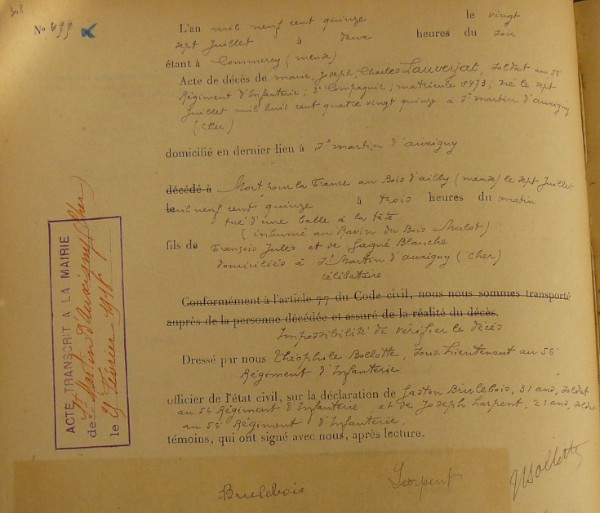 308
No 499
L'an mil neuf cent quinze le vingt
sept Juillet à deux heures du soir
étant à Commercy (meuse)
Acte de décès de marie, Joseph, Charles Lauverjat, soldat au 56
Régiment d'Infanterie, 3e Compagnie, matricule 8473, né le sept
Juillet mil huit cent quatre vingt quinze à St martin d'auxigny
(Cher)
domicilié en dernier lieu à St martin d'auxigny
décédé à Mort pour la France au Bois d'ailly (meuse) le sept Juillet
mil neuf cent quinze à trois heures du matin
tué d'une balle à la tête
(inhumé au Ravin du Bois Mulot)
fils de François Jules et de Blanche
domiciliés à St Martin d'auxigny (Cher)
célibataire
Conformément à l'article 77 du Code civil, nous nous sommes transporté
auprès de la personne décédée et assuré de la réalité du décès.
Impossibilité de vérifier le décès
Dressé par nous Théophile Bollotte, Sous Lieutenant au 56
Régiment d'Infanterie
officier de l'état civil, sur la déclaration de Gaston Brulebois, 31 ans, soldat
au 56 Régiment d'Infanterie et de Joseph Sarpent, 21 ans, soldat
au 56 Régiment d'Infanterie.
témoins, qui ont signé avec nous, après lecture.
Brulebois Sarpent Bollotte
ACTE TRANSCRIT A LA MAIRIE
de St Martin d'Auxigny (Cher)
le Février 1916